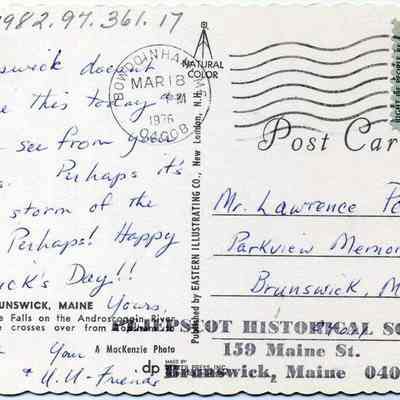 1982.97.361.17
swick doesn't
this today
see from your
Perhaps it's
storm of the
Perhaps! Happy
ick's Day!!
Yours,
Your
& U.U. Friends
UNSWICK, MAINE
e Falls on the Androscoggin River
e crosses over from
A MacKenzie Photo
dp
MADE BY
BOWDOINHAM, ME
MAR 18
1976
04008
NATURAL
COLOR
Published by EASTERN ILLUSTRATING CO., New London, N.H.
Post Car
Mr. Lawrence
Parkview Memor
Brunswick, M
PEJEPSCOT HISTORICAL SO
159 Maine St.
Brunswick, Maine 040